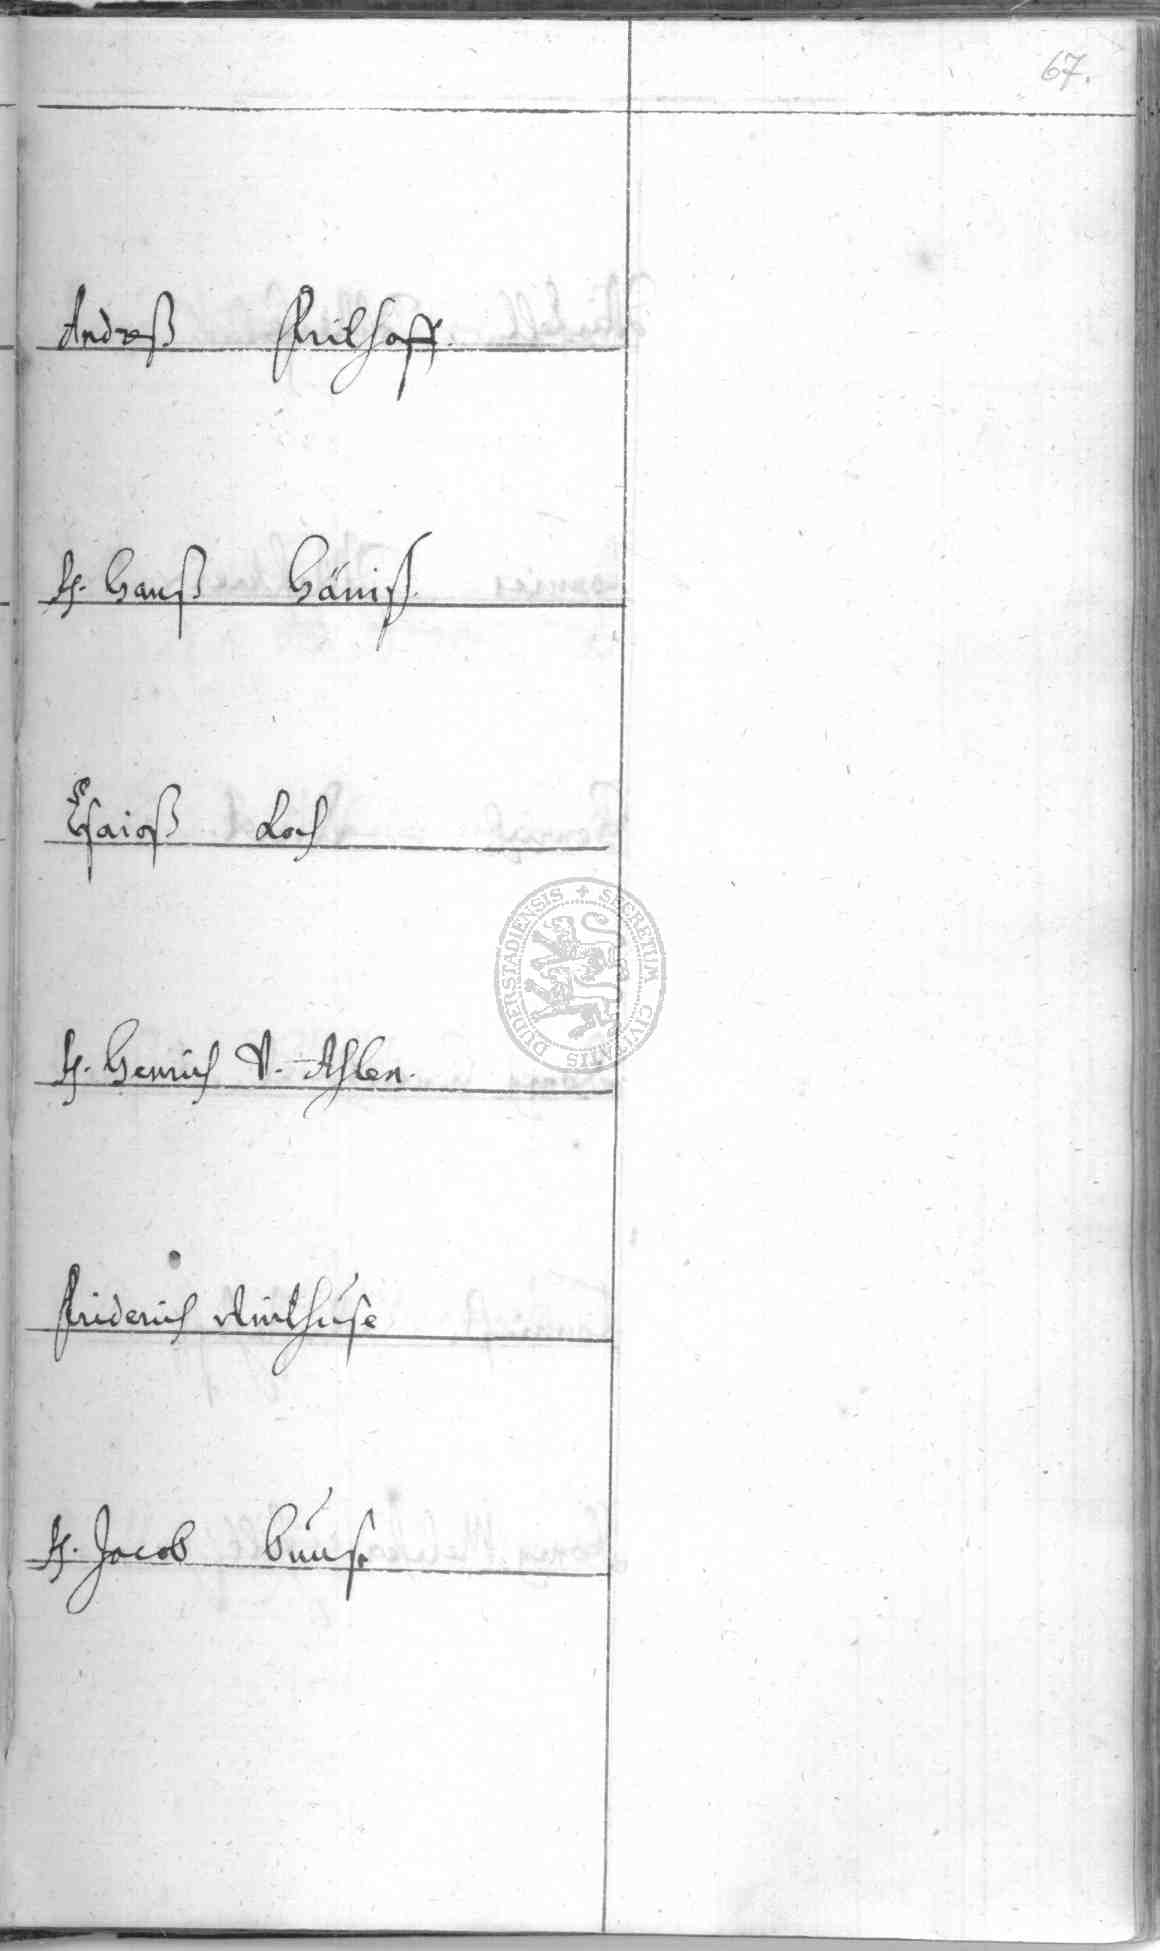 67.
Andreß Frilhoff.
H. Hanß Häniß.
Esaiaß Loch
H. Henrich V. Ahlen.
Friderich
H. Jacob
SECRETUM CIVITATIS DUDERSTADIENSIS